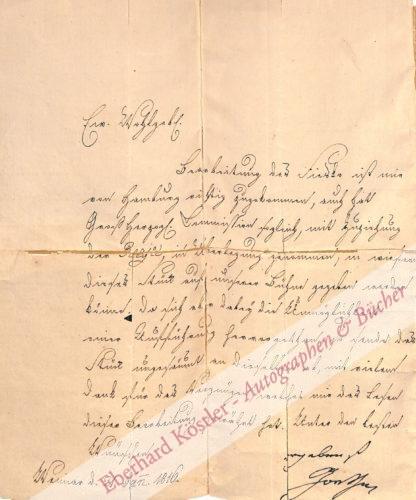 Ew. Wohlgeb.
Bearbeitung des Fiesko ist mir
von Hamburg richtig zugekommen, auch hat
Großherzogl. Commission sogleich, mit Zuziehung
der Regie, in Überlegung genommen, in wiefern
dieses Stück auf unserer Bühne gegeben werden
könne. Da sich aber dabey die Unmöglichkeit
einer Aufführung hervorgethan, so sende das
Stück ungesäumt an Dieselben, mit vielem
Dank für das Vergnügen, welches mir das Lesen
dieser Bearbeitung gewährt hat. Unter den besten
Wünschen
ergebenst
Weimar d. Jan. 1816.
Goethe
Eberhard Köstler - Autographen & Bücher